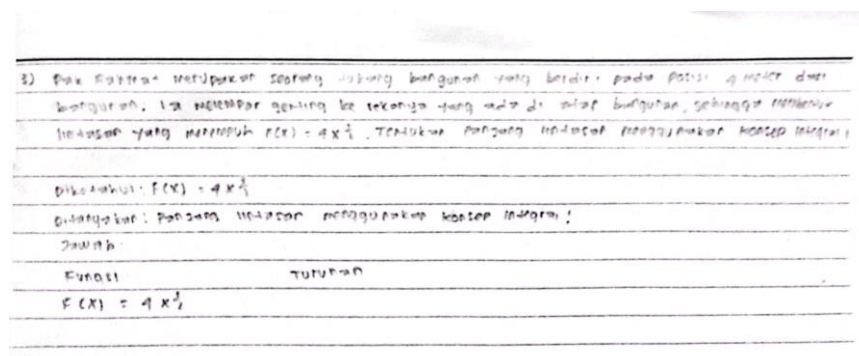 3) Pak Rahmat merupakan seorang tukang bangunan yang berdiri pada posisi 4 meter dari
bangunan. Ia melempar genting ke rekannya yang ada di atap bangunan, sehingga membentuk
lintasan yang menempuh F(x) = 4x. Tentukan panjang lintasan menggunakan konsep integral!
Diketahui: F(x) = 4x
Ditanyakan: Panjang lintasan menggunakan konsep integral!
Jawab:
Fungsi Turunan
F(x) = 4x